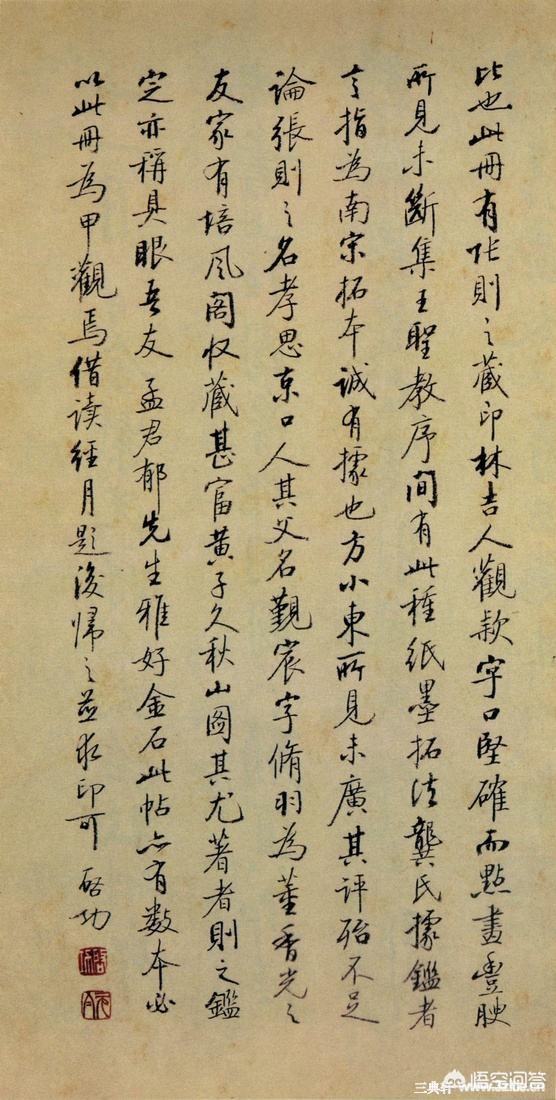 比也此冊有张則之藏印林吉人觀款字口堅確而點畫豊腴
所見未斷集王聖教序間有此種紙墨拓法龔氏據鑑者
言指為南宋拓本誠有據也方小東所見未廣其評殆不足
論張則之名孝思京口人其父名覲宸字脩羽為董香光之
友家有培風阁收藏甚富黃子久秋山图其尤著者則之鑑
定亦稱具眼吾友孟君郁先生雅好金石此帖亦有數本必
以此冊為甲觀焉借读經月題後歸之並求印可 啓功
悟空问答
三典轩 www.52bc.cn